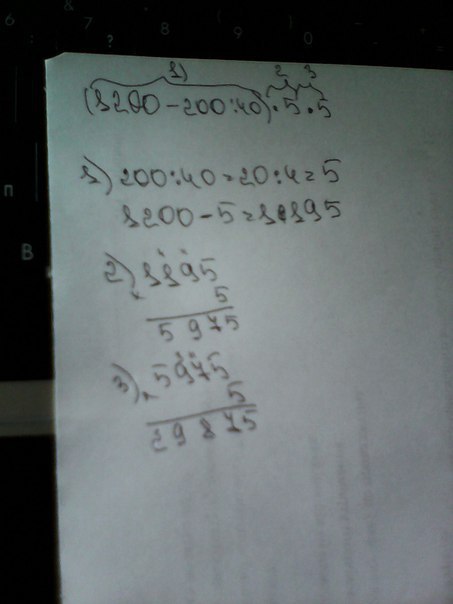 1) 2 3
(1200 - 200:40) · 5 · 5
1) 200:40=20:4=5
1200 - 5 = 1195
2) 1195
× 5
5975
3) 5975
× 5
29875